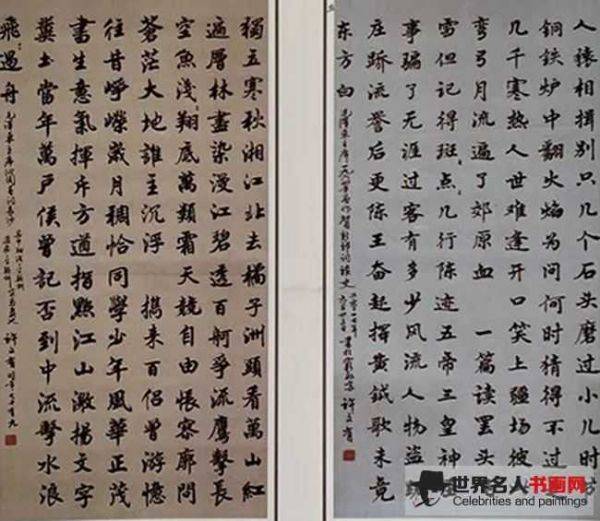 人猿相揖别只几个石头磨过小儿时节
铜铁炉中翻火焰为问何时猜得不过
几千寒热人世难逢开口笑上疆场彼
弯弓月流遍了郊原血 一篇读罢头
雪但记得斑点几行陈迹五帝三皇神
事骗了无涯过客有多少风流人物盗
庄蹻流誉后更陈王奋起挥黄钺歌未竟
东方白
獨立寒秋湘江北去橘子洲頭看萬山紅
遍層林盡染漫江碧透百舸爭流鷹擊長
空魚淺翔底萬類霜天競自由悵寥廓問
蒼茫大地誰主沉浮 携来百侣曾游憶
往昔崢嶸歲月稠恰同學少年風華正茂
書生意氣揮斥方遒指點江山激揚文字
糞土當年萬戶侯曾記否到中流擊水浪
飛遏舟
世界名人书画网
Celebrities and painting